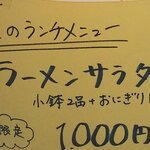 のランチメニュー
ラーメンサラダ
小鉢2品+おにぎり
限定
1,000円